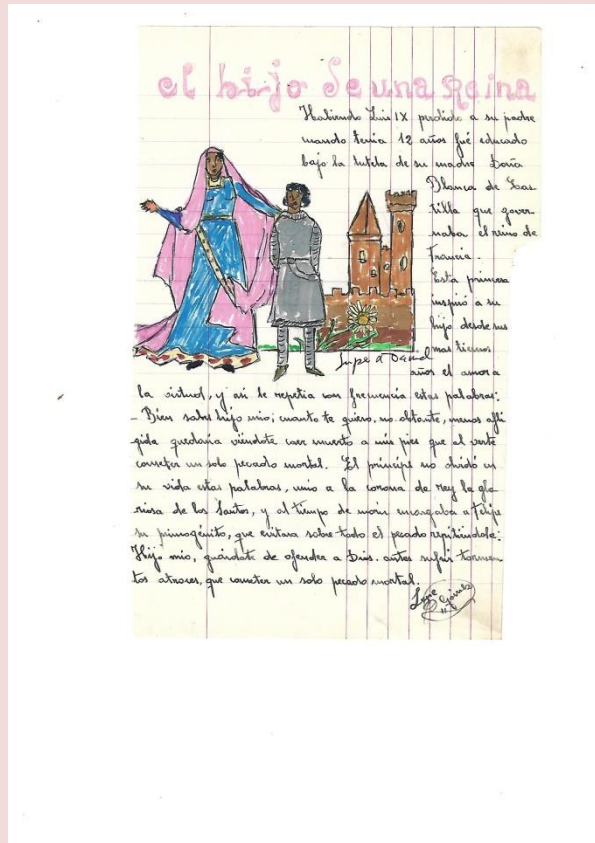 el hijo de una Reina
Habiendo Luis IX perdido a su padre
cuando tenia 12 años fué educado
bajo la tutela de su madre Doña
Blanca de Cas
tilla que gover
naba el reino de
Francia.
Esta princesa
inspiró a su
hijo desde sus
mas tiernos
años el amor a
la virtud, y asi le repetia con frecuencia estas palabras:
- Bien sabes hijo mio; cuanto te quiero, no obstante, menos afli
gida quedaria viéndote caer muerto a mis pies que al verte
cometer un solo pecado mortal. El príncipe no olvidó en
su vida estas palabras, unio a la corona de rey la glo
riosa de los Santos, y al tiempo de morir encargaba a Felipe
su primogénito, que evitara sobre todo el pecado repitiendole:
Hijo mio, guárdate de ofender a Dios. antes sufrir tormen
tos atroces, que cometer un solo pecado mortal.